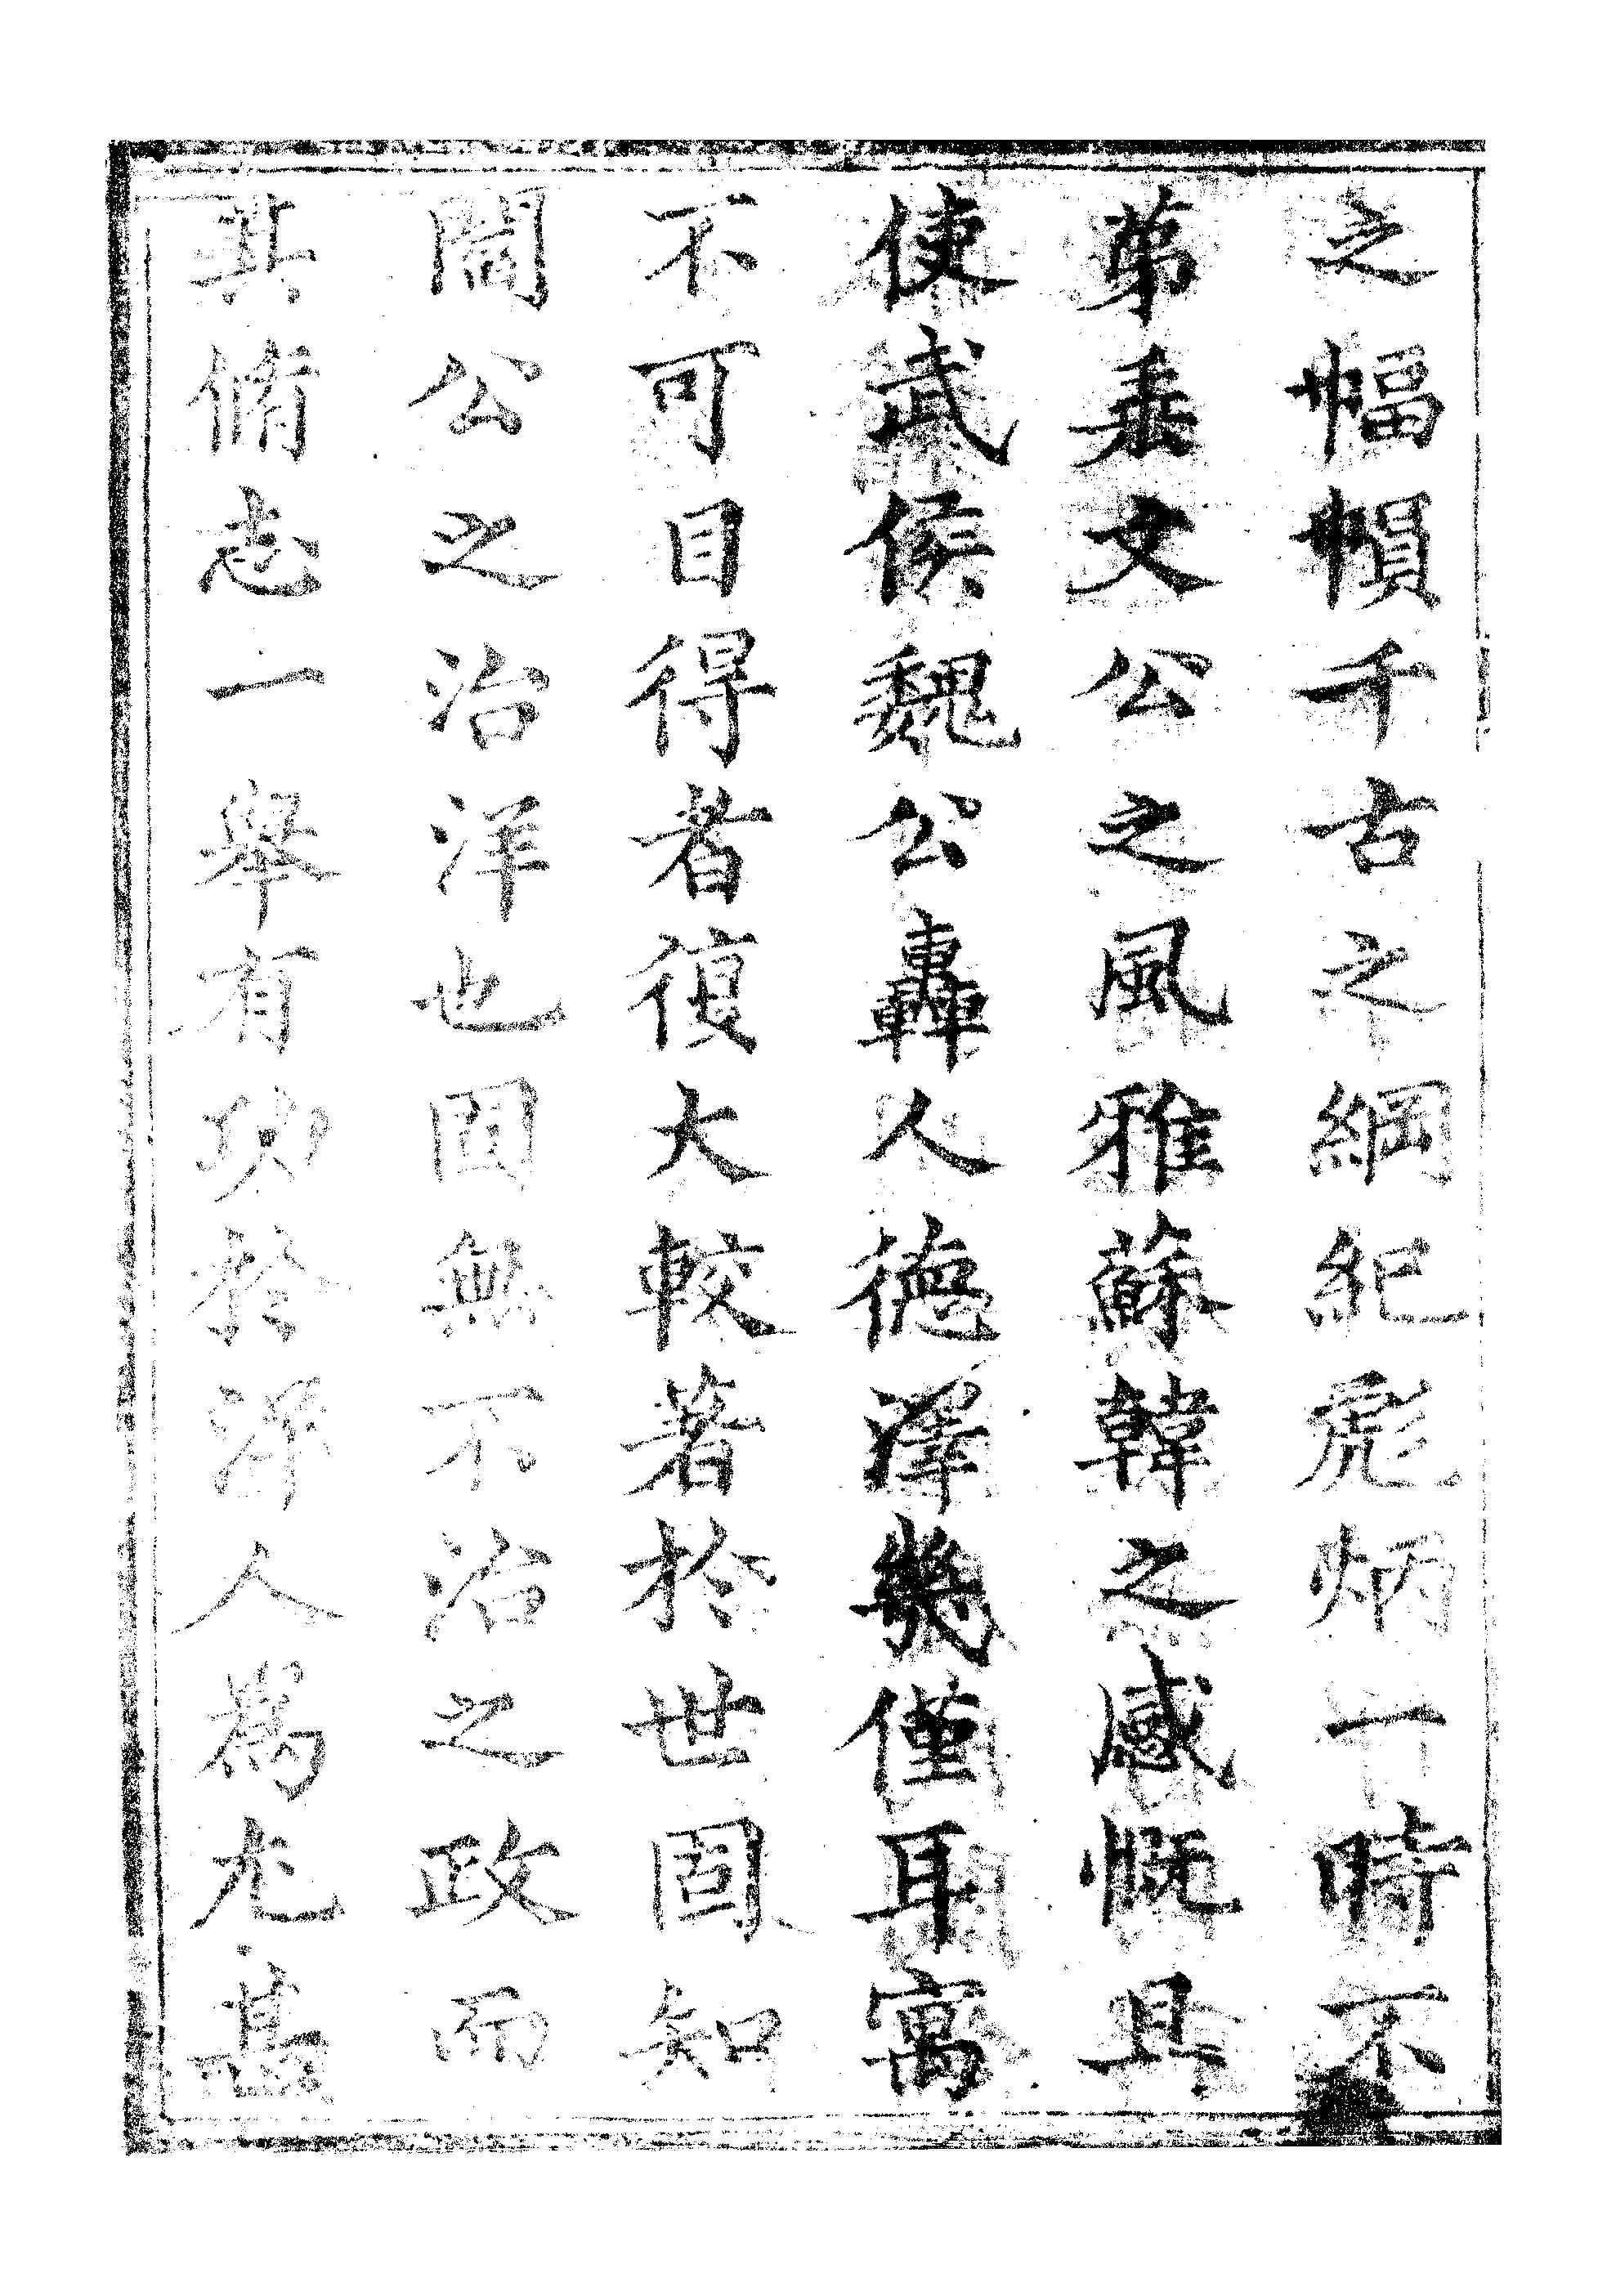 之幅幁千古之綱紀彪炳一時不
第垂文公之風雅蘇韓之感慨且
使武侯魏公轟人德澤幾僅耳寓
不可目得者復大較著於世固知
閻公之治洋也固無不治之政而
其脩志一舉有功於澤人為尤甚